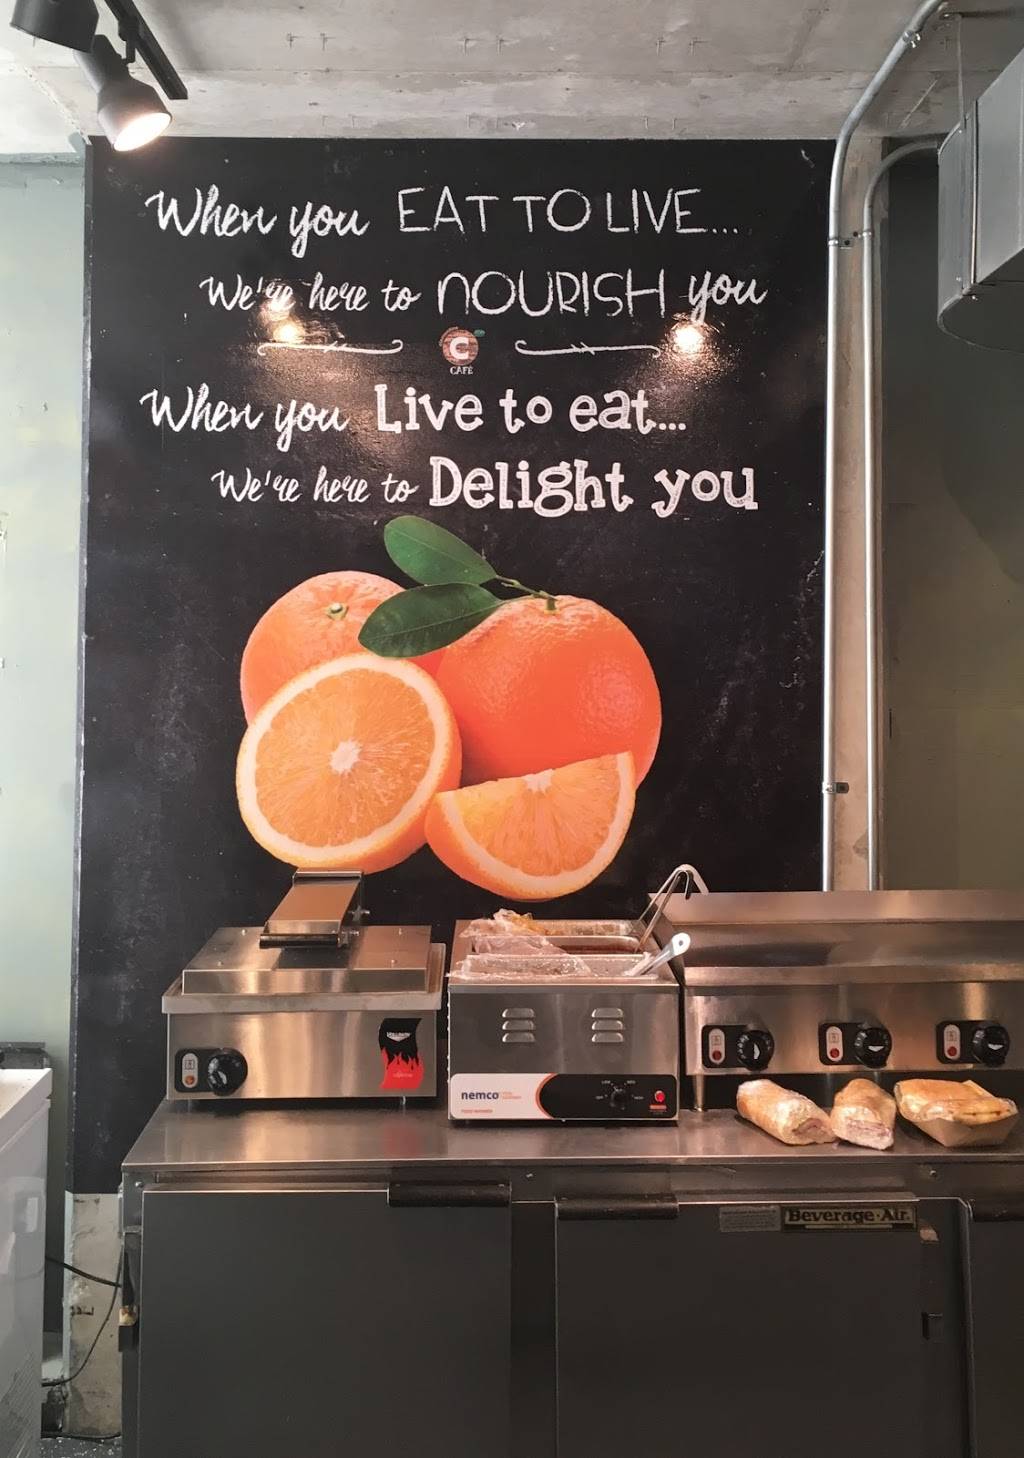 When you EAT TO LIVE...
We're here to NOURISH you
C
CAFÉ
When you Live to eat...
We're here to Delight you
VOLLRATH
nemco
FOOD WARMER
Beverage-Air